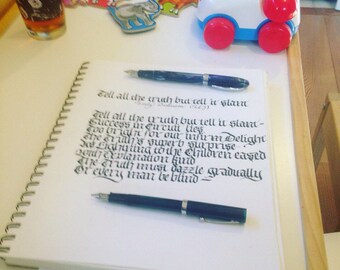 Tell all the truth but tell it slant
Emily Dickinson
Tell all the truth but tell it slant -
Success in Circuit lies
Too bright for our infirm Delight
The Truth's superb surprise
As Lightning to the Children eased
With explanation kind
The Truth must dazzle gradually
Or every man be blind -